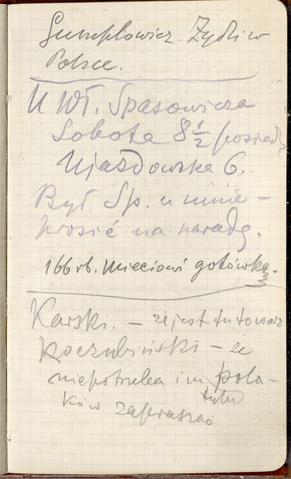 Gumplowicz. Żydzi w
Polsce.
U Wł. Spasowicza
Sobota 8 1/2 posiedz
Ujazdowska 6.
Był Sp. u mnie –
prosić na naradę.
166 rb. Mieciowi gotówką.
Karski. – że jest tu towarz
Koczubiński – że
niepotrzeba im pola-
ków zapraszać